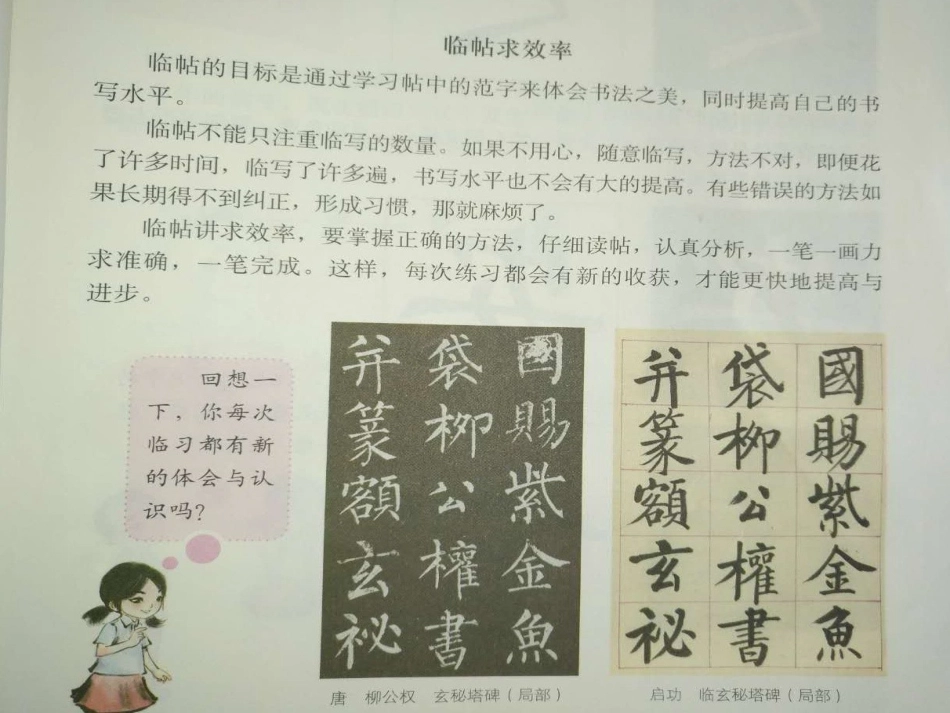 临帖求效率
临帖的目标是通过学习帖中的范字来体会书法之美，同时提高自己的书
写水平。
临帖不能只注重临写的数量。如果不用心，随意临写，方法不对，即便花
了许多时间，临写了许多遍，书写水平也不会有大的提高。有些错误的方法如
果长期得不到纠正，形成习惯，那就麻烦了。
临帖讲求效率，要掌握正确的方法，仔细读帖，认真分析，一笔一画力
求准确，一笔完成。这样，每次练习都会有新的收获，才能更快地提高与
进步。
回想一
下，你每次
临习都有新
的体会与认
识吗？
國賜紫金魚
袋柳公權書
并篆額玄祕
唐 柳公权 玄秘塔碑（局部）
國賜紫金魚
袋柳公權書
并篆額玄祕
启功 临玄秘塔碑（局部）